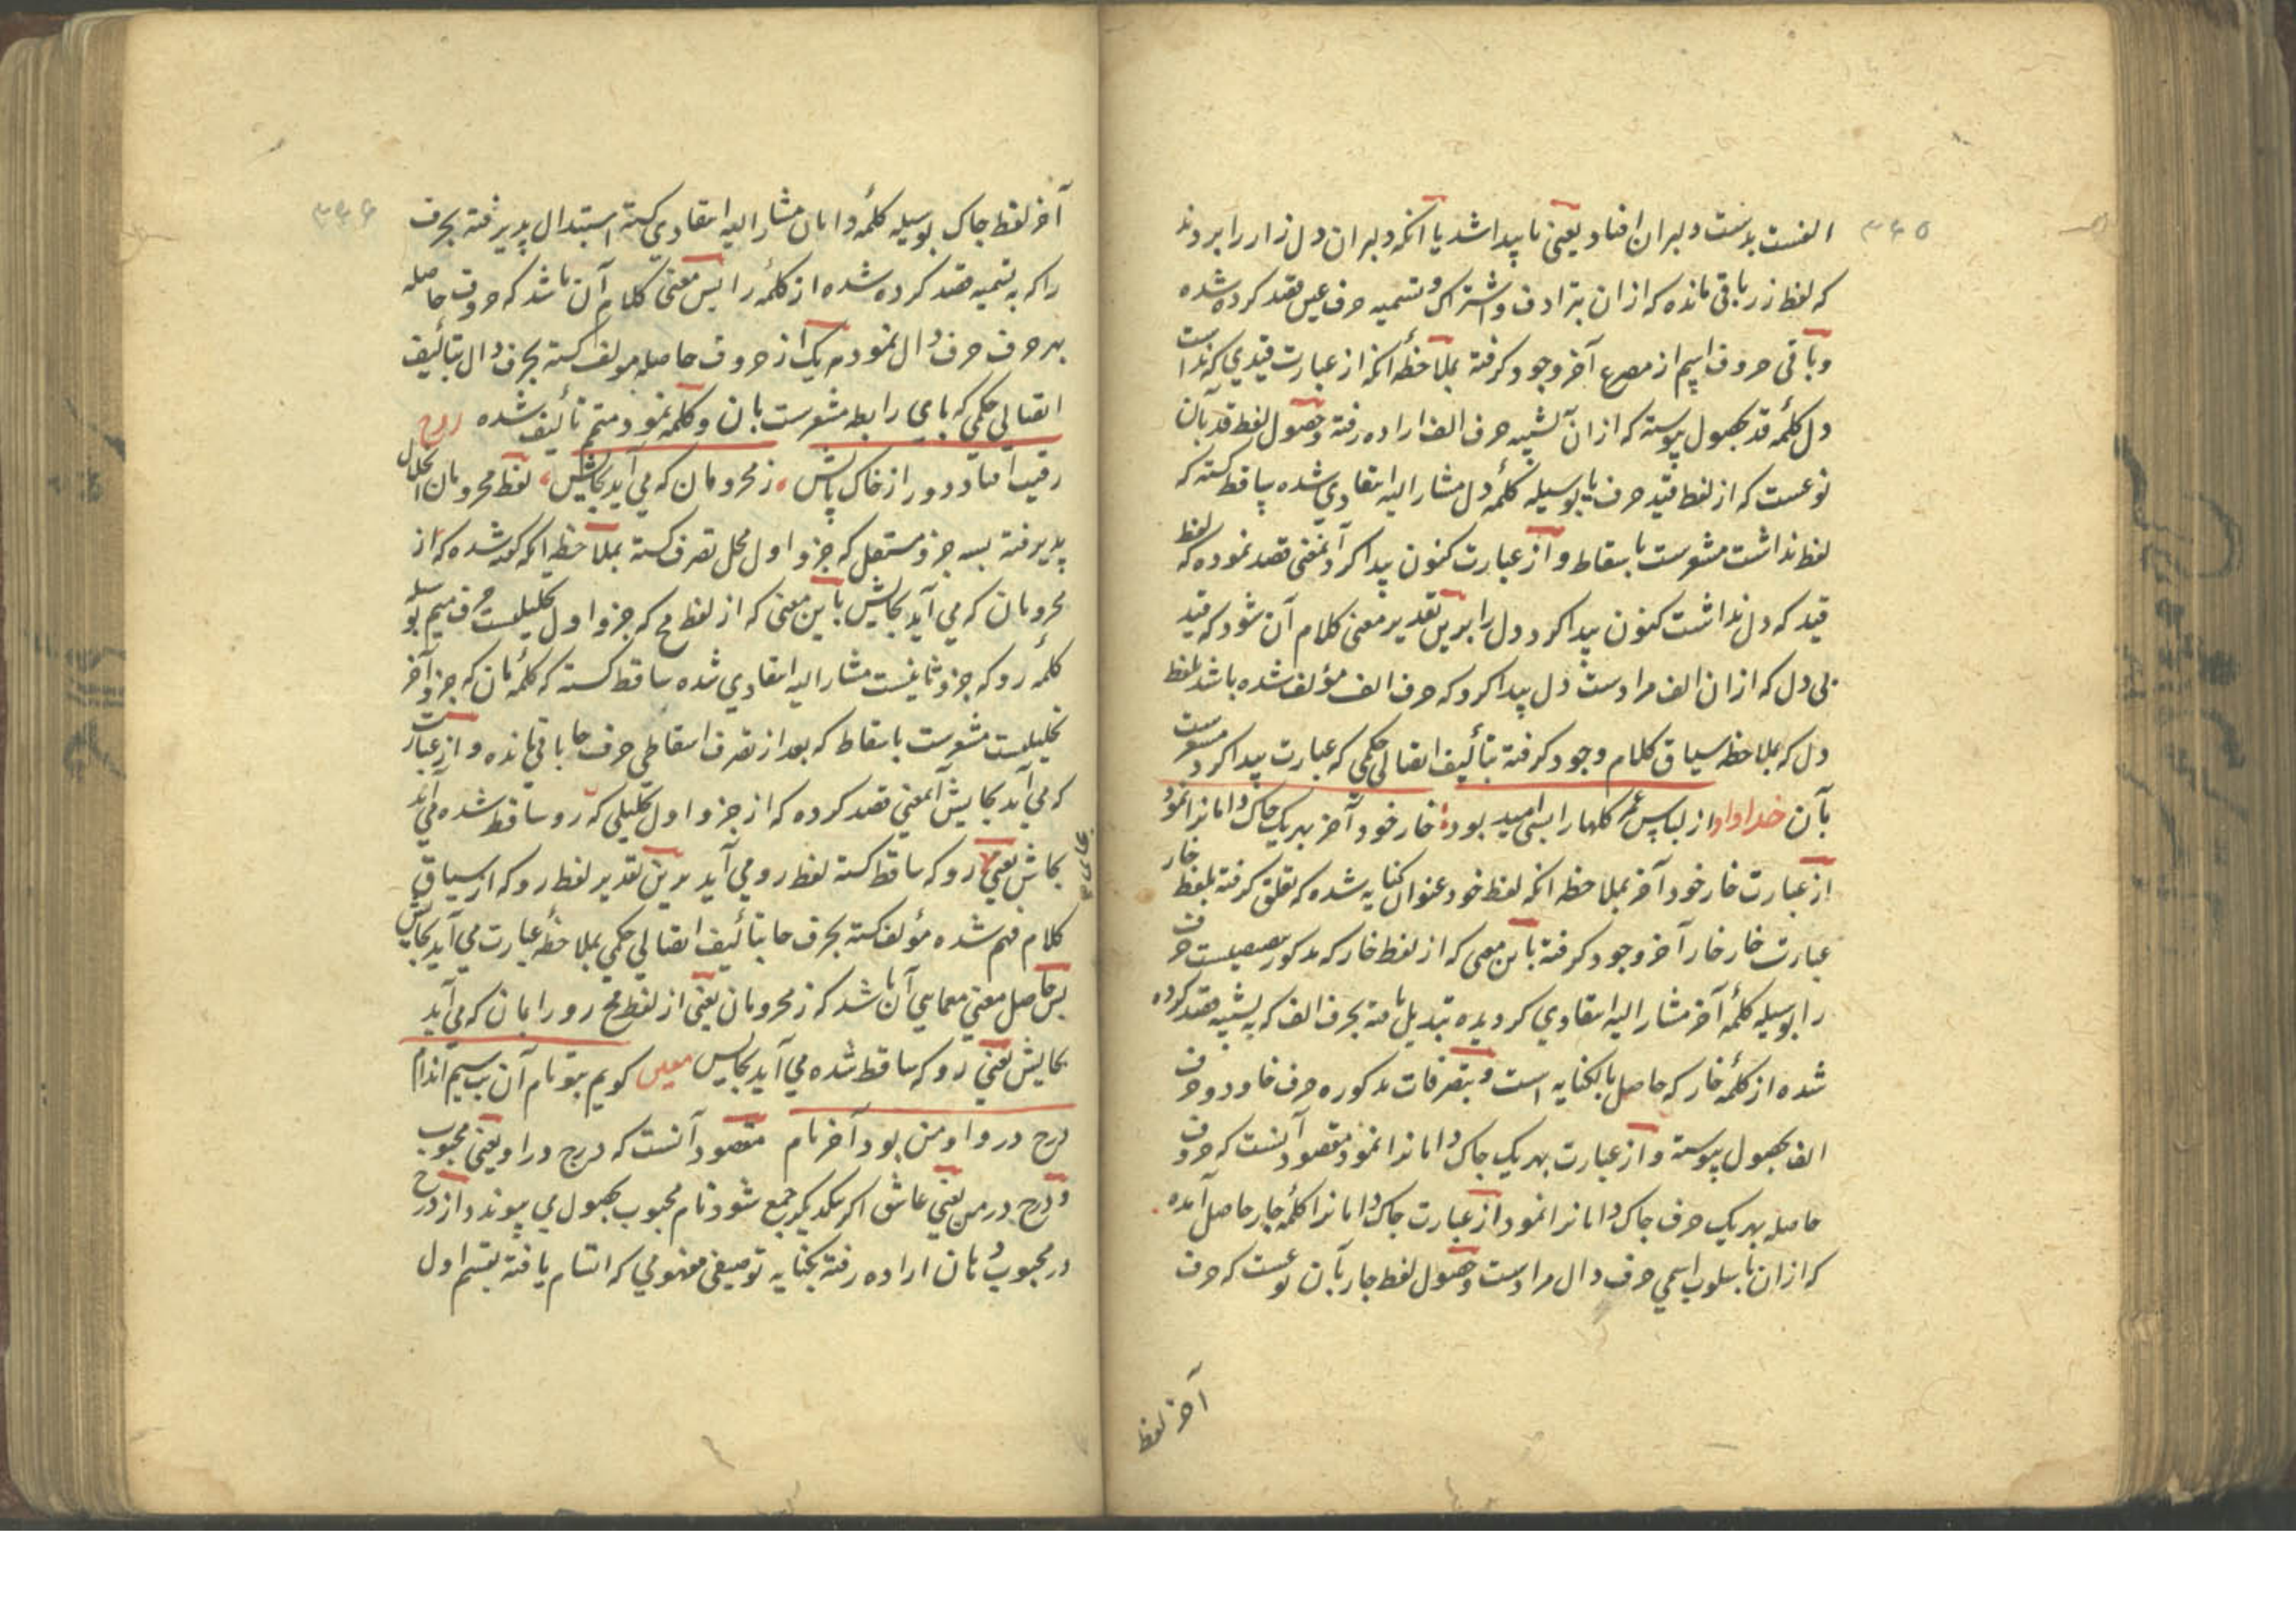 ۳۴۵
الفست بدست دلبران افتاد یعنی ناپیدا شد یا آنکه دلبران دل زار را بردند
که لفظ زر باقی مانده که ازان بترادف و اشتراک و تسمیه حرف عین قصد کرده شده
و باقی حروف اسم از مصرع آخر وجود کرفته بملاحظهٔ آنکه از عبارت قیدی که نداشت
دل کلمهٔ قد بحصول پیوسته که ازان تشبیه حرف الف اراده رفته و حصول لفظ قد بآن
نوعست که از لفظ قید حرف یا بوسیله کلمهٔ دل مشار الیه انتقادی شده ساقط کشته که
لفظ نداشت مشعرست باسقاط و از عبارت کنون پیدا کرد آنمعنی قصد نموده که لفظ
قید که دل نداشت کنون پیدا کرد دل را برین تقدیر معنی کلام آن شود که قید
بی دل که ازان الف مرادست دل پیدا کرد که حرف الف مؤلف شده باشد بلفظ
دل که بملاحظه سیاق کلام وجود کرفته بتألیف اتصالی حکمی که عبارت پیدا کرد مشعرست
بآن خداداد از لباس عمر کلها را بسی امید بود خار خود آخر بهر یک چاک دامانرا نمود
از عبارت خار خود آخر بملاحظه آنکه لفظ خود عنوان کنایه شده که تعلق کرفته بلفظ خار
عبارت خار خار آخر وجود کرفته باین معنی که از لفظ خار که مذکور بصیغیست حرف
را بوسیله کلمهٔ آخر مشار الیه انتقادی کردیده تبدیل یافته بحرف الف که به تشبیه قصد کرده
شده از کلمهٔ خار که حاصل بالکنایه است و بتصرفات مذکوره حرف خا و دو حرف
الف بحصول پیوسته و از عبارت بهر یک چاک دامانرا نمود مقصود آنست که حروف
حاصله بهر یک حرف چاک دامانرا نمود از عبارت چاک دامانرا کلمهٔ چار حاصل آمده
که ازان باسلوب اسمی حرف دال مرادست و حصول لفظ چار بآن نوعست که حرف
آخر لفظ
۳۴۶
آخر لفظ چاک بوسیله کلمهٔ دامان مشار الیه انتقادی کشته استبدال پذیرفته بحرف
را که به تسمیه قصد کرده شده از کلمهٔ را پس معنی کلام آن باشد که حروف حاصله
بهر حرف حرف دال نمود هر یک از حروف حاصله مولف کشته بحرف دال بتألیف
اتصالی حکمی که بای رابطه مشعرست بان و کلمه نمود متمم تألیف شده روح
رقیب افتاد دور از خاک پایش ز محرومان که می آید بجایش لفظ محرومان انحلال
پذیرفته بسه جزو مستقل که جزو اول محل تصرف کشته بملاحظه آنکه کفته شده که از
محرومان که می آید بجایش باین معنی که از لفظ مح که جزو اول تحلیلیست حرف میم بوسیله
کلمه رو که جزو ثانیست مشار الیه انتقادی شده ساقط کشته که کلمهٔ مان که جزو آخر
تحلیلیست مشعرست باسقاط که بعد از تصرف اسقاطی حرف حا باقی مانده و از عبارت
که می آید بجایش آنمعنی قصد کرده که از جزو اول تحلیلی که رو ساقط شده می آید
بجایش یعنی رو که ساقط کشته لفظ رو می آید برین تقدیر لفظ رو که از سیاق
کلام فهم شده مؤلف کشته بحرف حا بتألیف اتصالی حکمی بملاحظهٔ عبارت می آید بجایش
پس حاصل معنی معمایی آن باشد که ز محرومان یعنی از لفظ مح رو را بمان که می آید
بجایش یعنی رو که ساقط شده می آید بجایش معین کویم بتو نام آن بت سیم اندام
درج در و او من بود آخر نام مقصود آنست که درج در او یعنی محبوب
و درج در من یعنی عاشق اکر بیکدیکر جمع شود نام محبوب بحصول می پیوندد از درج
در محبوب دهان اراده رفته بکنایه توصیفی مفهومی که اتسام یافته بقسم اول